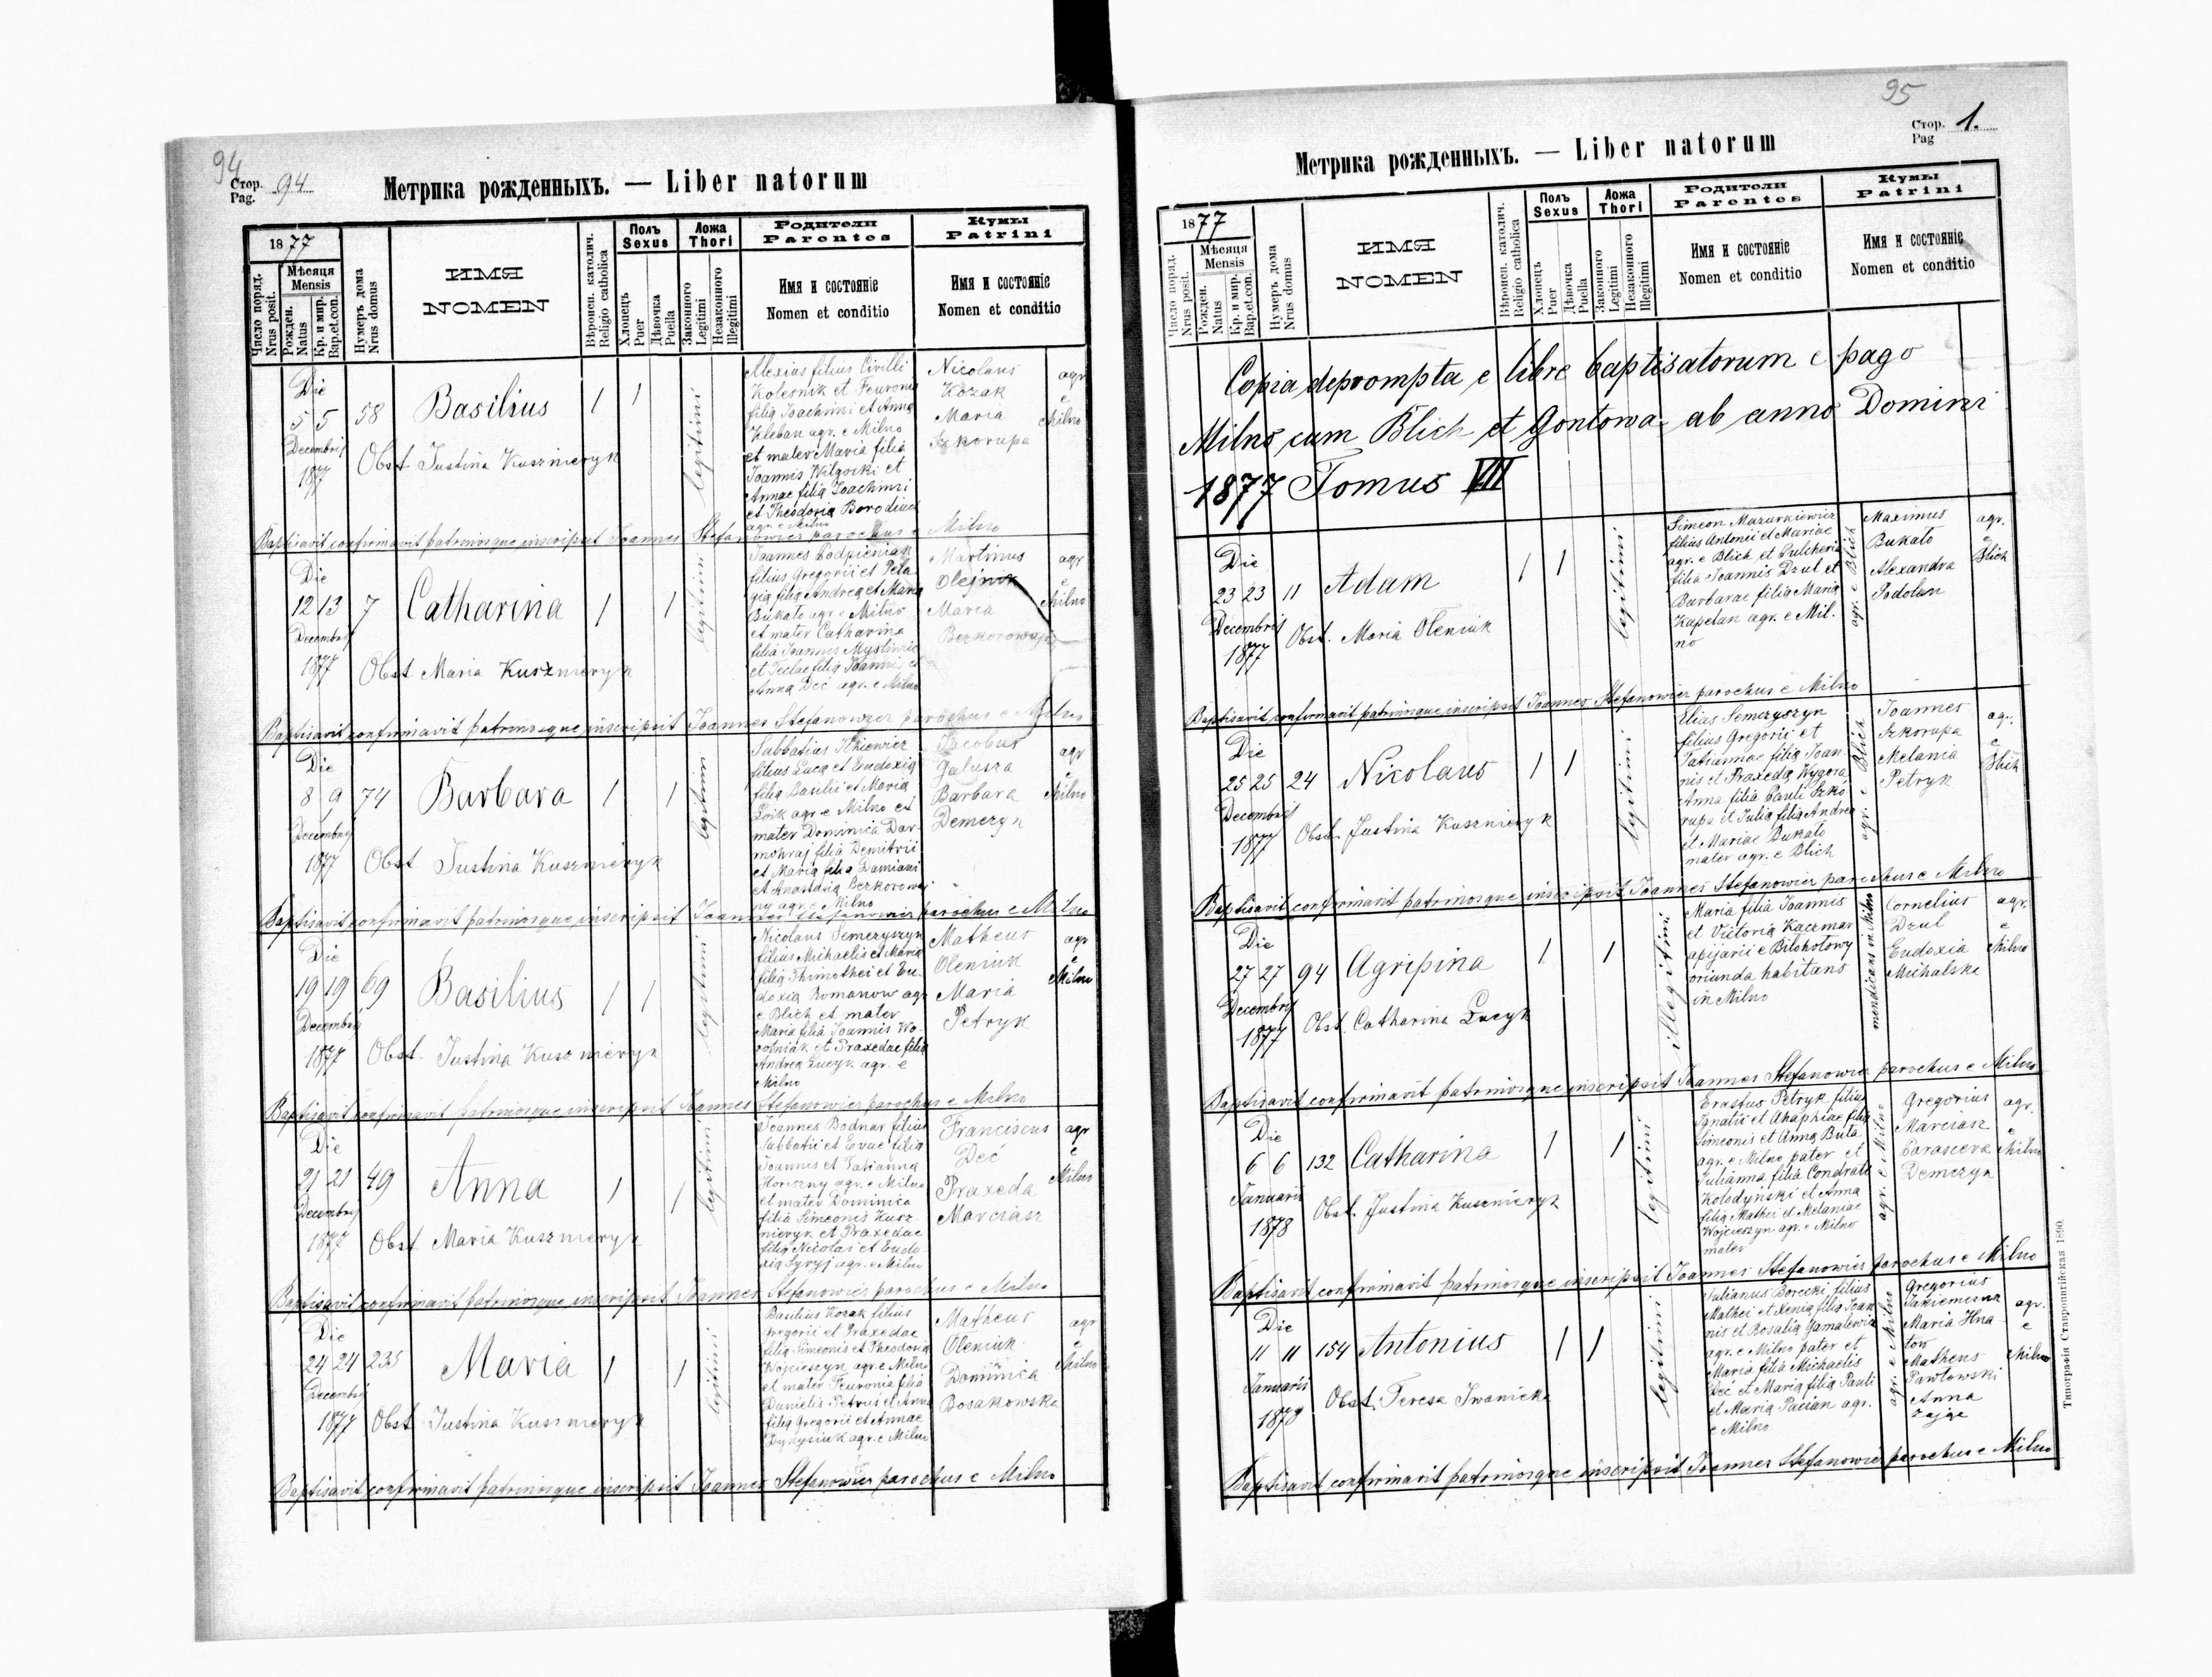 94
Стор. Pag. 94
Метрика рожденныхъ. — Liber natorum
1877
Число поряд. Nrus posit.
Мѣсяця Mensis
Рожден. Natus
Кр. и мир. Bap. et. con.
Нумеръ дома Nrus domus
ИМЯ NOMEN
Вѣроисп. католич. Religio catholica
Полъ Sexus
Хлопецъ Puer
Дѣвочка Puella
Ложа Thori
Законного Legitimi
Незаконного Illegitimi
Родители Parentes
Имя и состоянiе
Nomen et conditio
Кумы Patrini
Имя и состоянiе
Nomen et conditio
Die
5 5 58 Basilius 1 1 legitimi
Decembris
1877
Obst Justina Kusznieryk
Alexius filius Cirilli
Kolesnik et Feuronia
filia Joachimi et Anna
Kleban agr. e Milno
et mater Maria filia
Joannis Wilgocki et
Annae filia Joachimi
et Theodosia Borodiuch
agr. e Milno
Nicolaus
Kozak
Maria
Szkorupa
agr
e
Milno
Baptisavit confirmavit patrinosque inscripsit Joannes Stefanowicz parochus e Milno
Die
12 13 7 Catharina 1 1 legitimi
Decembris
1877
Obst Maria Kuszneryk
Joannes Podzieniak
filius Gregorii et Pela
gia filia Andrea et Maria
Bukato agr. e Milno
et mater Catharina
filia Joannis
et Teclae filia Joannis et
Anna Dec agr. e Milno
Martinus
Olejnik
Maria
agr
e
Milno
Baptisavit confirmavit patrinosque inscripsit Joannes Stefanowicz parochus e Milno
Die
8 9 74 Barbara 1 1 legitimi
Decembris
1877
Obst Justina Kusznieryk
Sabbatius Ilkiewicz
filius Luca et Eudoxia
filia Basilii et Maria
Zoik agr. e Milno et
mater Dominica Dar-
mohraj filia Demitrii
et Maria filia Damiani
et Anastasia Bezkorowaj
ny agr. e Milno
Jacobus
Galusza
Barbara
Demczyn
agr
e
Milno
Baptisavit confirmavit patrinosque inscripsit Joannes Stefanowicz parochus e Milno
Die
19 19 69 Basilius 1 1 legitimi
Decembris
1877
Obst. Justina Kusznieryk
Nicolaus Semczyszyn
filius Michaelis et Maria
filia Thimothei et Eu
doxia Romanow agr
e Blich et mater
Maria filia Joannis Wo-
rotniak et Praxedae filia
Andrea Lucyk agr. e
Milno
Matheus
Oleniuk
Maria
Petryk
agr
e
Milno
Baptisavit confirmavit patrinosque inscripsit Joannes Stefanowicz parochus e Milno
Die
21 21 49 Anna 1 1 legitimi
Decembris
1877
Obst Maria Kusznieryk
Joannes Bodnar filius
Sabbatii et Evae filia
Joannis et Tatianna
Horiszny agr. e Milno
et mater Dominica
filia Simeonis Kusz-
nieryk et Praxedae
filia Nicolai et Eudo
xia Syryj agr. e Milno
Franciscus
Dec
Praxeda
Marciasz
agr
e
Milno
Baptisavit confirmavit patrinosque inscripsit Joannes Stefanowicz parochus e Milno
Die
24 24 235 Maria 1 1 legitimi
Decembris
1877
Obst Justina Kusznieryk
Basilius Kozak filius
Gregorii et Praxedae
filia Simeonis et Theodosia
Wojcieszyn agr. e Milno
et mater Feuronia filia
Danielis Petrus et Anna
filia Gregorii et Annae
Dynysiuk agr. e Milno
Matheus
Oleniuk
Dominica
Bosakowska
agr
e
Milno
Baptisavit confirmavit patrinosque inscripsit Joannes Stefanowicz parochus e Milno
95
Стор. Pag 1.
Метрика рожденныхъ. — Liber natorum
1877
Число поряд. Nrus posit.
Мѣсяця Mensis
Рожден. Natus
Кр. и мир. Bap. et. con.
Нумеръ дома Nrus domus
ИМЯ NOMEN
Вѣроисп. католич. Religio catholica
Полъ Sexus
Хлопецъ Puer
Дѣвочка Puella
Ложа Thori
Законного Legitimi
Незаконного Illegitimi
Родители Parentes
Имя и состоянiе
Nomen et conditio
Кумы Patrini
Имя и состоянiе
Nomen et conditio
Copia deprompta e libre baptisatorum e pago
Milno cum Blich et Gontowa ab anno Domini
1877 Tomus VII
Die
23 23 11 Adam 1 1 legitimi
Decembris
1877
Obst. Maria Oleniuk
Simeon Mazurkiewicz
filius Antonii et Mariae
agr. e Blich et Pulcheria
filia Joannis Dzul et
Barbarae filia Maria
Kapelan agr. e Mil-
no
agr. e Blich
Maximus
Bukato
Alexandra
Podolan
agr.
e
Blich
Baptisavit confirmavit patrinosque inscripsit Joannes Stefanowicz parochus e Milno
Die
25 25 24 Nicolaus 1 1 legitimi
Decembris
1877
Obst. Justina Kusznieryk
Elias Semczyszyn
filius Gregorii et
Tatiannae filia Joan-
nis et Praxeda Wygora
Anna filia Pauli Szko
rupa et Julia filia Andrea
et Mariae Bukato
mater agr. e Blich
agr. e Blich
Joannes
Szkorupa
Melania
Petryk
agr.
e
Blich
Baptisavit confirmavit patrinosque inscripsit Joannes Stefanowicz parochus e Milno
Die
27 27 94 Agripina 1 1 illegitimi
Decembris
1877
Obst. Catharina Lucyk
Maria filia Joannis
et Victoria Kaczmar
apijarii e Bilohotowy
oriunda habitans
in Milno
mendicans in Milno
Cornelius
Dzul
Eudoxia
Michalska
agr.
e
Milno
Baptisavit confirmavit patrinosque inscripsit Joannes Stefanowicz parochus e Milno
Die
6 6 132 Catharina 1 1 legitimi
Januarii
1878
Obst. Justina Kusznieryk
Erastus Petryk filius
Ignatii et Ahaphiae filia
Simeonis et Anna Buta
agr. e Milno pater et
Julianna filia Condrata
Kolodyński et Anna
filia Mathei et Melaniae
Wojcieszyn agr. e Milno
mater
agr. e Milno
Gregorius
Marciasz
Parasceva
Demczyn
agr.
e
Milno
Baptisavit confirmavit patrinosque inscripsit Joannes Stefanowicz parochus e Milno
Die
11 11 154 Antonius 1 1 legitimi
Januarii
1878
Obst. Teresa Iwanicka
Julianus Borecki filius
Mathei et Xenia filia Joan
nis et Rosalia Gamalewicz
agr. e Milno pater et
Maria filia Michaelis
Dec et Maria filia Pauli
et Maria Pacian agr.
e Milno
agr. e Milno
Gregorius
Jakiemczuk
Maria Hna-
tow
Matheus
Pawlowski
Anna
Zajac
agr.
e
Milno
Baptisavit confirmavit patrinosque inscripsit Joannes Stefanowicz parochus e Milno
Типографія Ставропигійская 1890.